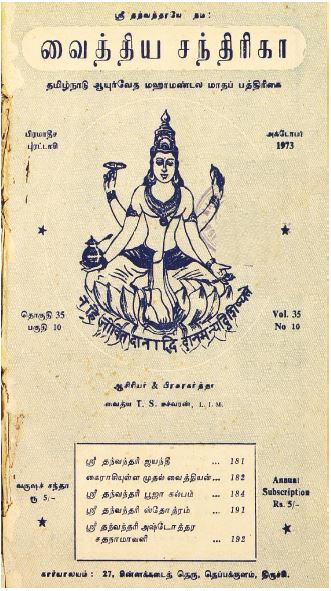 ஸ்ரீ தந்வந்தரயே நம:
வைத்திய சந்திரிகா
தமிழ்நாடு ஆயுர்வேத மஹாமண்டல மாதப் பத்திரிகை
பிரமாதீச
புரட்டாசி
அக்டோபர்
1973
தொகுதி 35
பகுதி 10
Vol. 35
No 10
ஆசிரியர் & பிரசுரகர்த்தா
வைத்ய T. S. ஈச்வரன், L. I. M.
வருஷச் சந்தா
ரூ 5/-
ஸ்ரீ தந்வந்தரி ஜயந்தீ ... 181
கைராசியுள்ள முதல் வைத்தியன்... 182
ஸ்ரீ தந்வந்தரி பூஜா கல்பம் ... 184
ஸ்ரீ தந்வந்தரி ஸ்தோத்ரம் ... 191
ஸ்ரீ தந்வந்தரி அஷ்டோத்தர
சதநாமாவளி ... 192
Annual
Subscription
Rs. 5/-
கார்யாலயம் : 27, சின்னக்கடைத் தெரு, தெப்பக்குளம், திருச்சி.